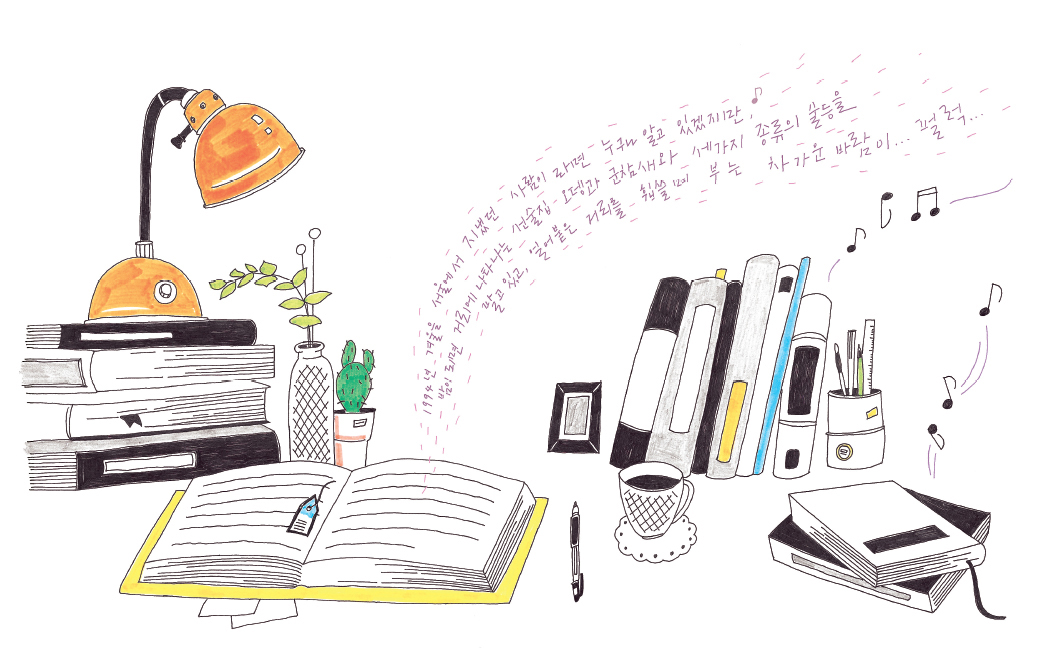 1994년 겨울을 서울에서 지냈던 사람이라면 누구나 알고 있겠지만,
밤이 되면 거리에 나타나는 선술집 오뎅과 군참새와 세가지 종류의 술등을
팔고 있고, 얼어붙은 거리를 휩쓸며 부는 차가운 바람이... 펄럭...